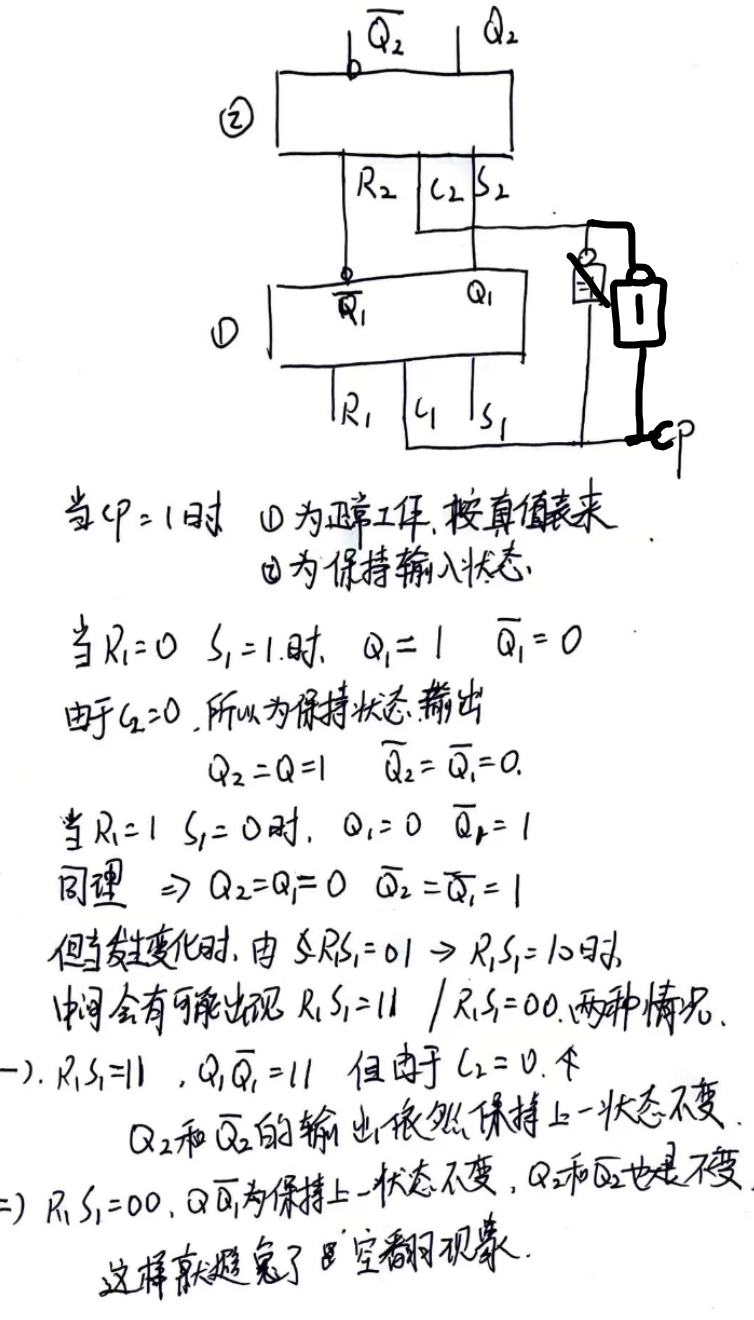 Q̅₂ Q₂
②
R₂ C₂ S₂
Q̅₁ Q₁
①
1
R₁ C₁ S₁
CP
当CP=1时 ①为正常工作,按真值表来
②为保持输入状态.
当R₁=0 S₁=1时, Q₁=1 Q̅₁=0
由于C₂=0,所以为保持状态.输出
Q₂=Q=1 Q̅₂=Q̅₁=0.
当R₁=1 S₁=0时, Q₁=0 Q̅₁=1
同理 ⇒ Q₂=Q₁=0 Q̅₂=Q̅₁=1
但当发生变化时,由R₁S₁=01→R₁S₁=10时,
中间会有可能出现 R₁S₁=11 / R₁S₁=00.两种情况.
一). R₁S₁=11 , Q₁Q̅₁=11 但由于C₂=0.
Q₂和Q̅₂的输出依然保持上一状态不变.
二) R₁S₁=00, QQ̅₁为保持上一状态不变, Q₂和Q̅₂也是不变.
这样就避免了空翻现象.